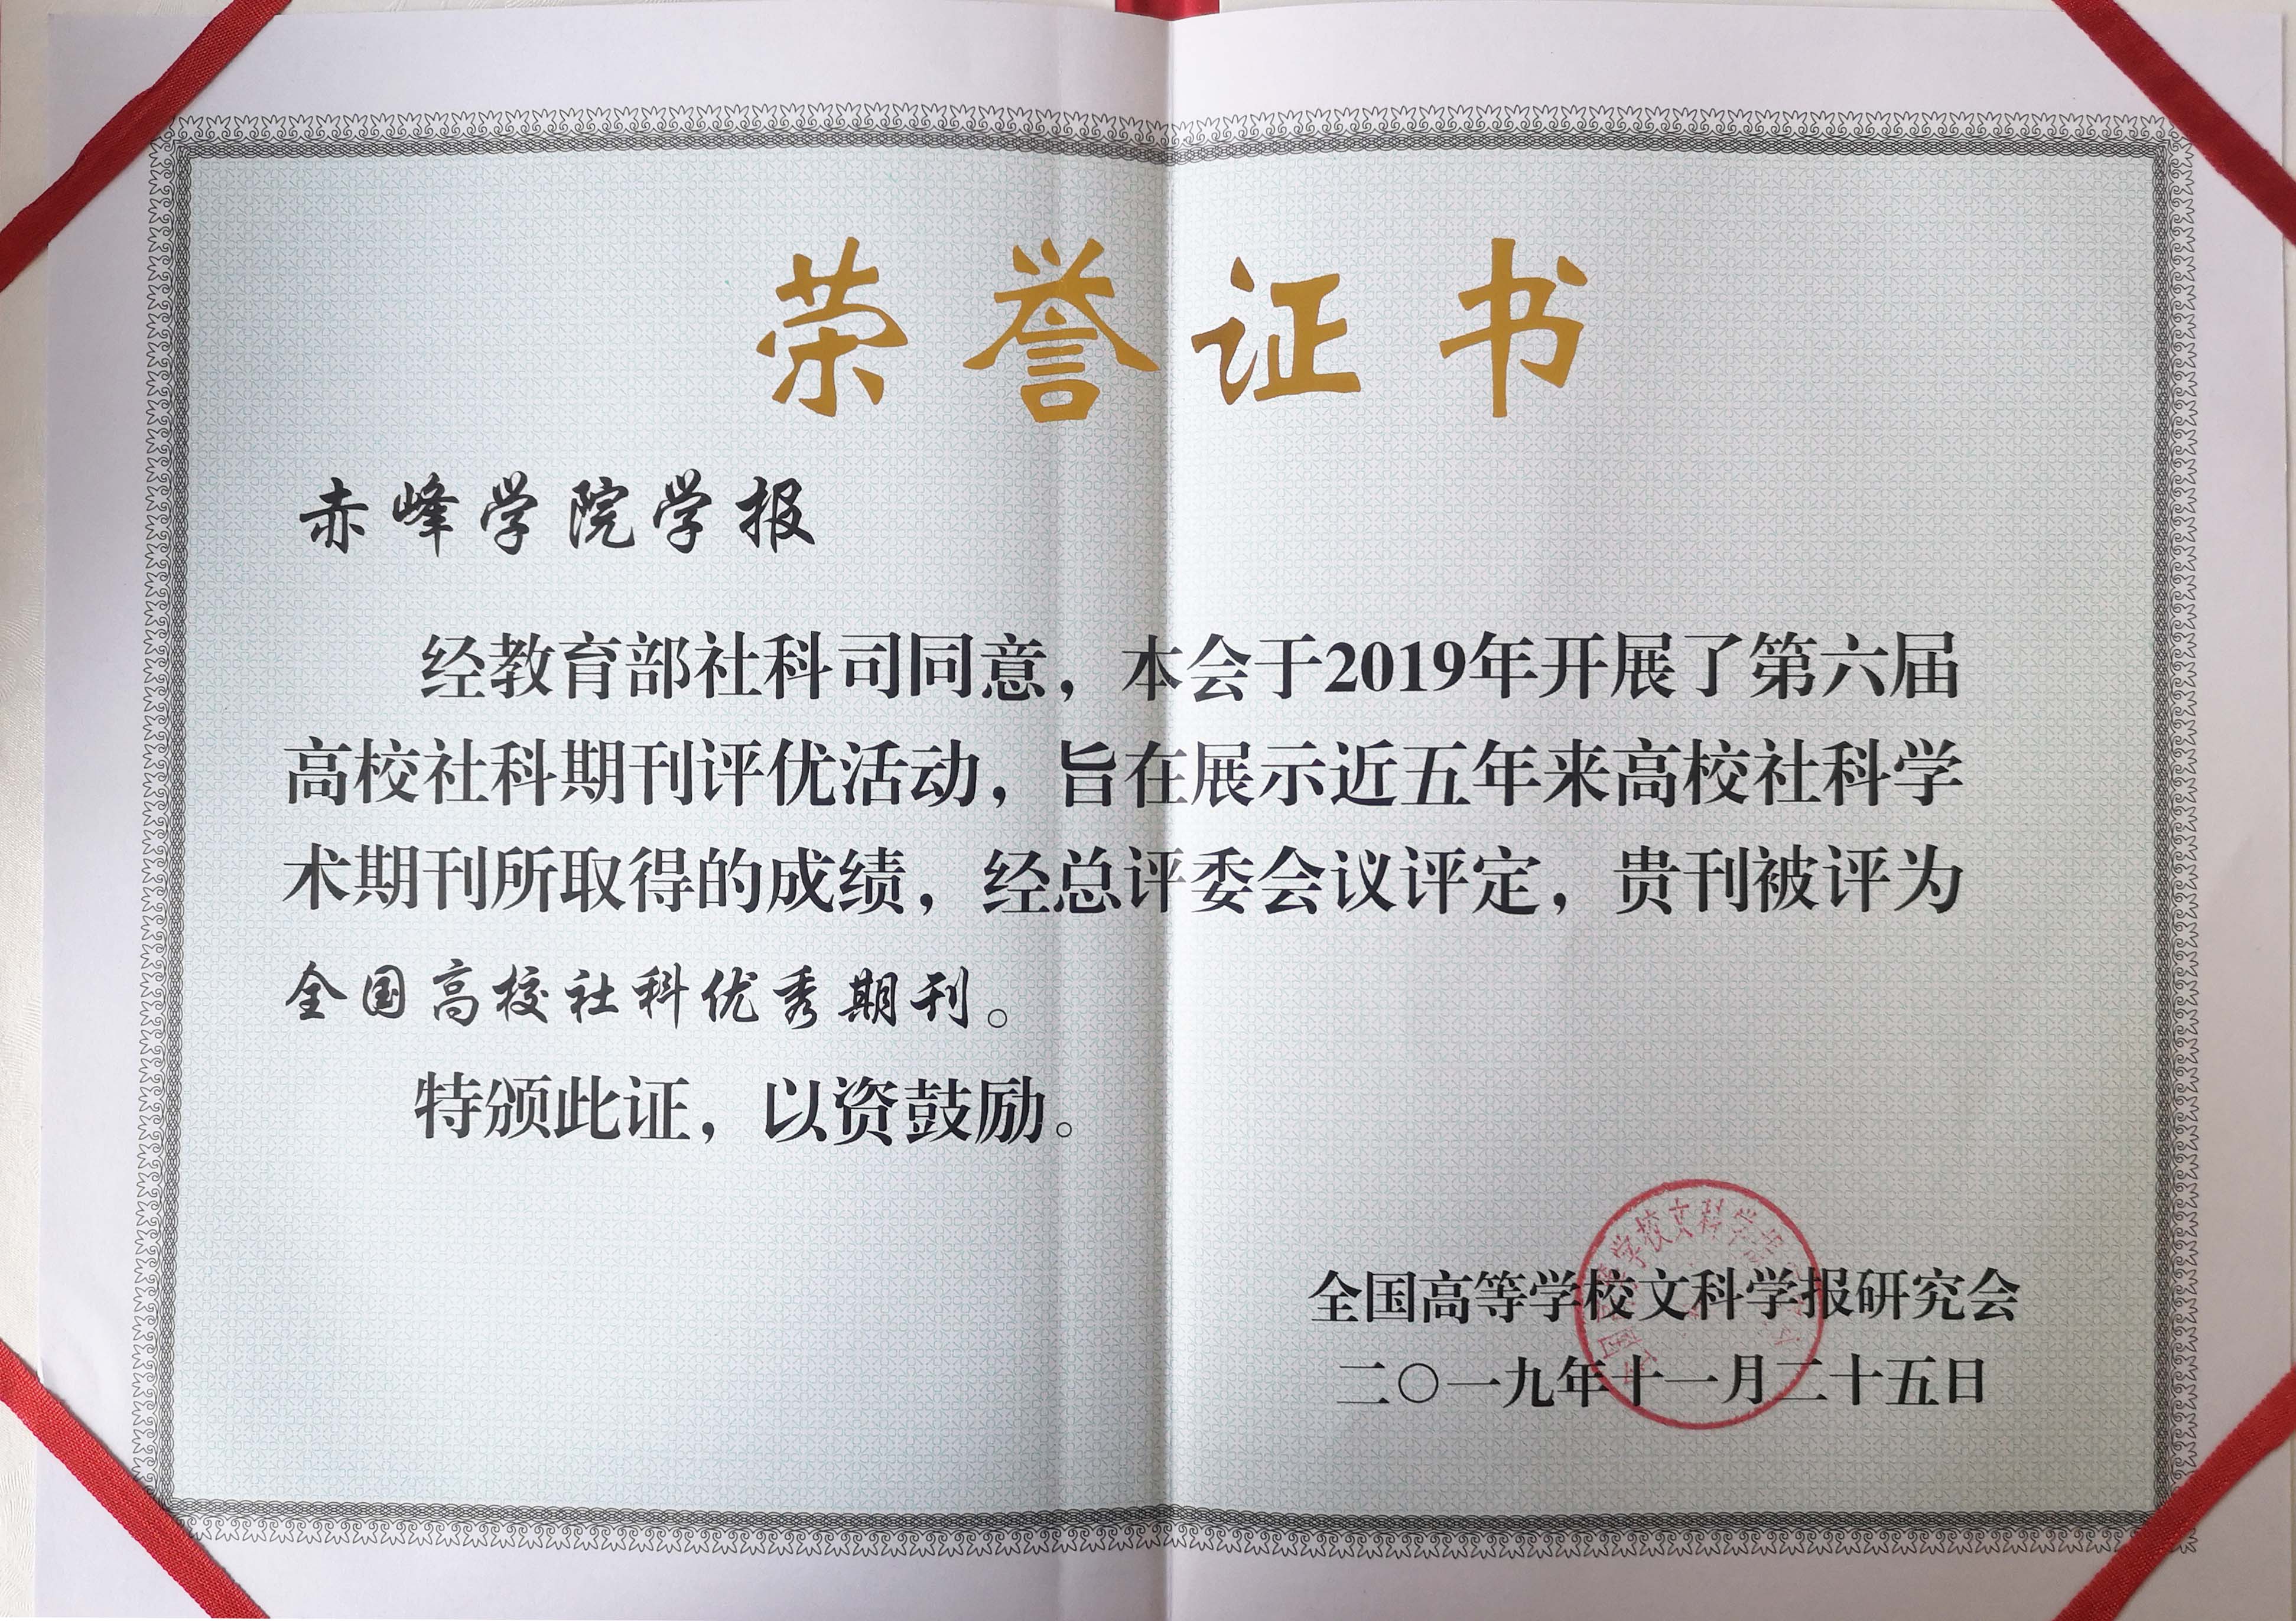 荣誉证书
赤峰学院学报
经教育部社科司同意，本会于2019年开展了第六届
高校社科期刊评优活动，旨在展示近五年来高校社科学
术期刊所取得的成绩，经总评委会议评定，贵刊被评为
全国高校社科优秀期刊。
特颁此证，以资鼓励。
全国高等学校文科学报研究会
二〇一九年十一月二十五日